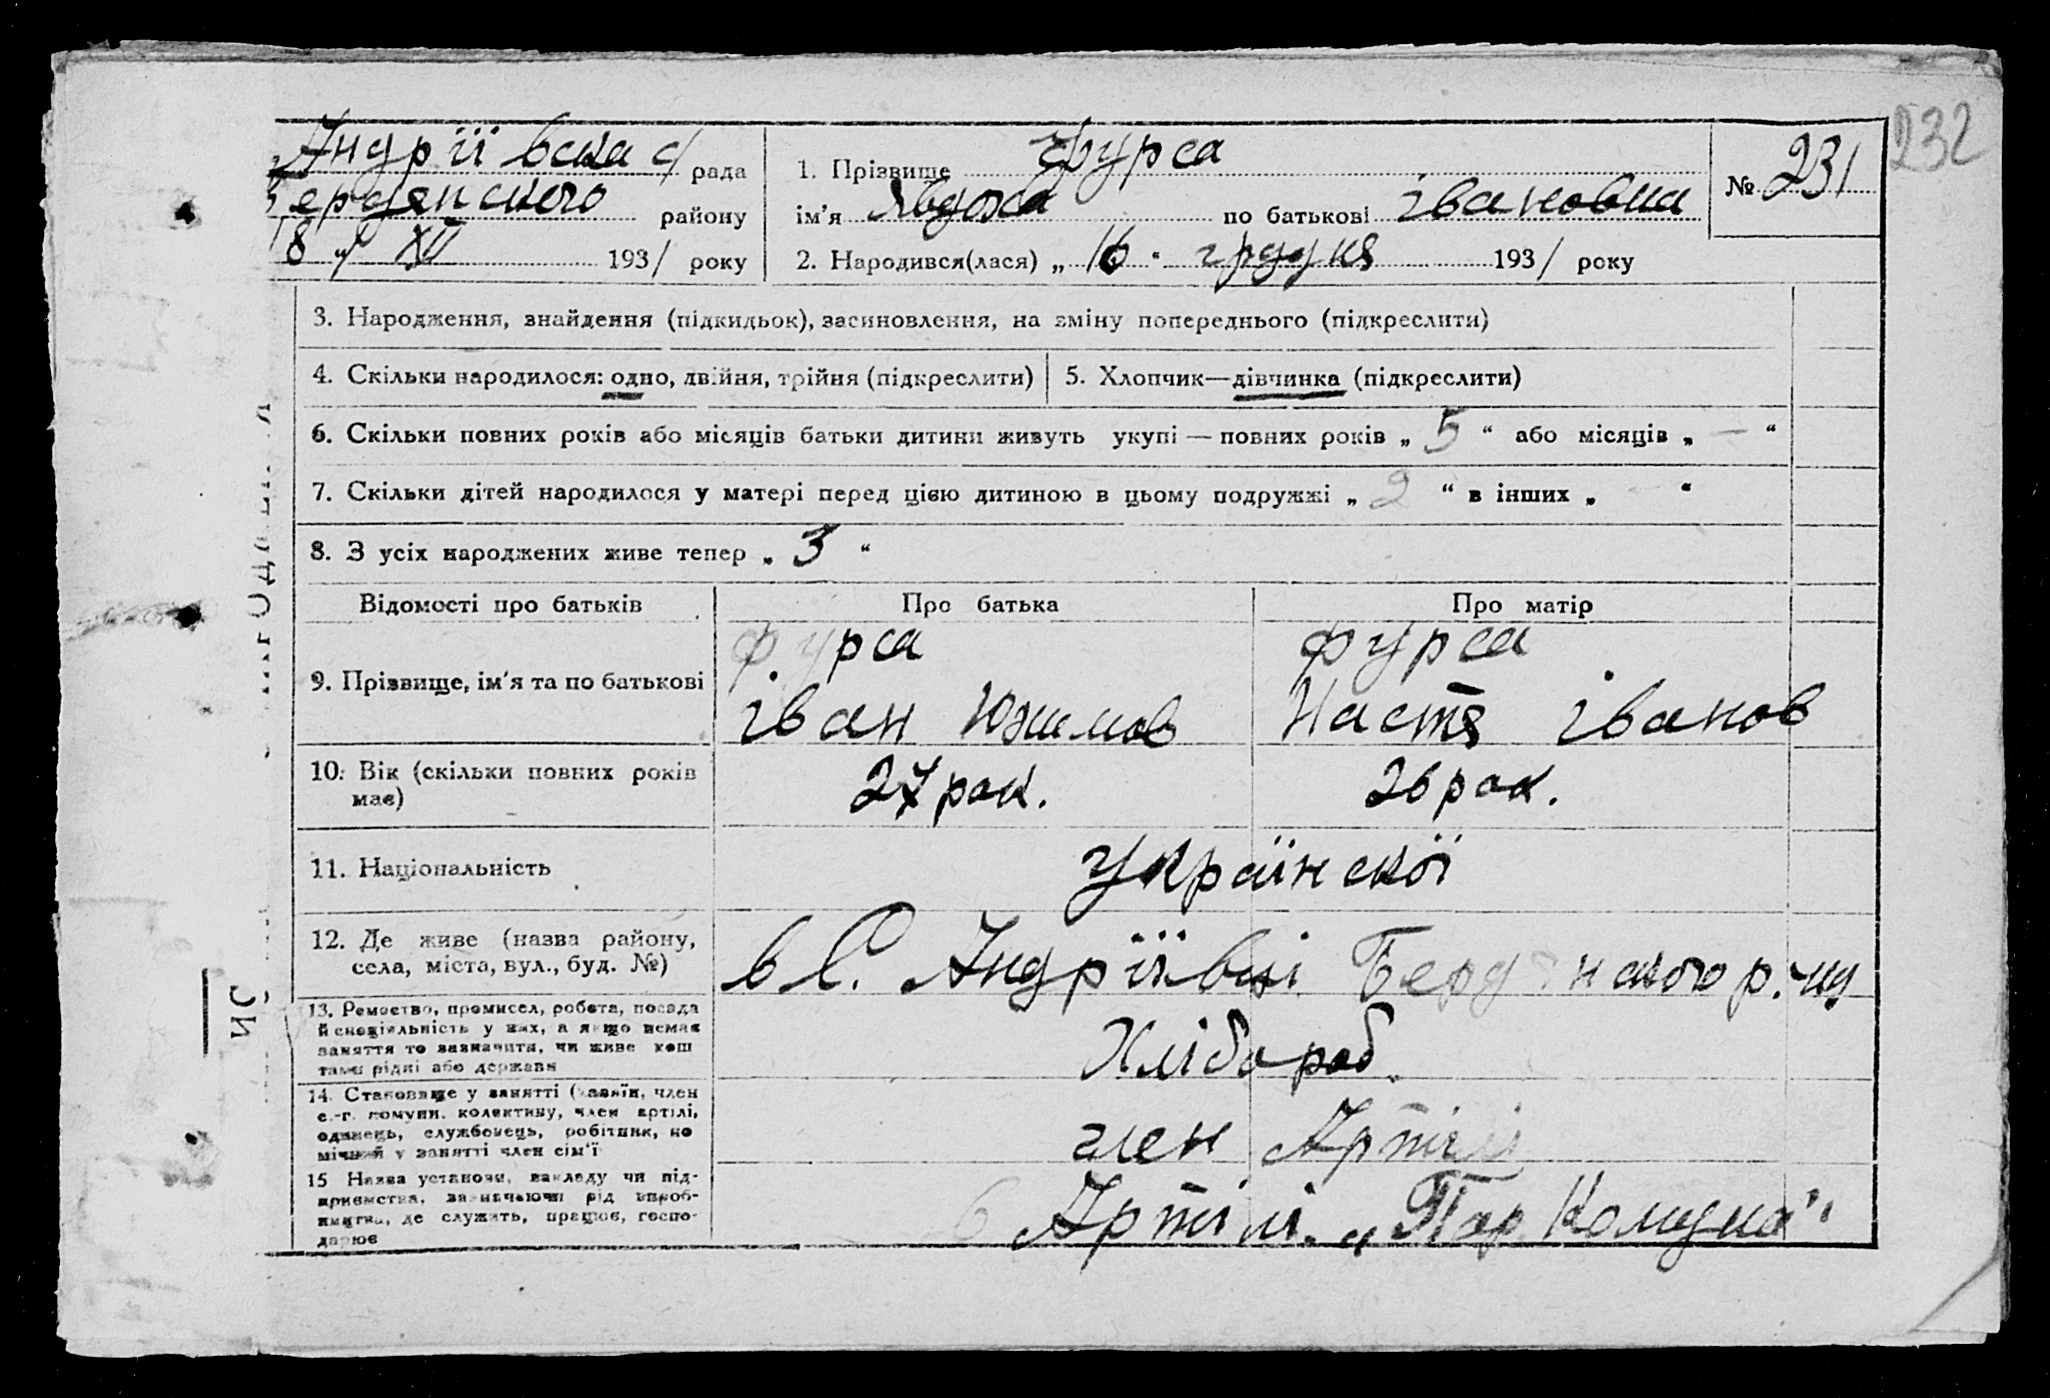 232
Андріївска с/рада
Бердянского району
18 „ XII 1931 року
1. Прізвище Фурса
ім'я Явдоха по батькові івановна
2. Народився(лася) „ 16 " грудня 1931 року
№ 231
3. Народження, знайдення (підкидьок), засиновлення, на зміну попереднього (підкреслити)
4. Скільки народилося: одно, двійня, трійня (підкреслити) 5. Хлопчик—дівчинка (підкреслити)
6. Скільки повних років або місяців батьки дитини живуть укупі — повних років „ 5 “ або місяців „ — “
7. Скільки дітей народилося у матері перед цією дитиною в цьому подружжі „ 2 “ в інших „ “
8. З усіх народжених живе тепер „ 3 “
Відомості про батьків Про батька Про матір
9. Прізвище, ім'я та по батькові
Фурса Фурса
іван Настя іванов
10. Вік (скільки повних років має)
27 рок. 26 рок.
11. Національність Українскої
12. Де живе (назва району,
села, міста, вул., буд. №)
в С. Андріївці Бердянского р.
13. Ремество, промисел, робота, посада
й спеціяльність у них, а якщо немає
заняття то зазначити, чи живе кош
тами рідні або держави
Хлібороб
14. Становище у занятті (хазяїн, член
с.-г. комуни, колективу, член артілі,
одинець, службовець, робітник, по
мічний у занятті член сім'ї
член Артілі
15 Назва установи, закладу чи під-
приємства, зазначаючи рід вироб-
ництва, де служить, працює, госпо-
дарює
в Артілі „Пар Комуна"